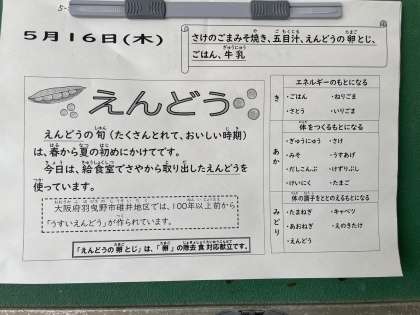 5月16日(木)
さけのごまみそ焼き、五目汁、えんどうの卵とじ、
ごはん、牛乳
えんどう
えんどうの旬(たくさんとれて、おいしい時期)
は、春から夏の初めにかけてです。
今日は、給食室でさやから取り出したえんどうを
使っています。
大阪府羽曳野市碓井地区では、100年以上前から
「うすいえんどう」が作られています。
「えんどうの卵とじ」は、「卵」の除去食対応献立です。
エネルギーのもとになる
き
・ごはん ・ねりごま
・さとう ・いりごま
体をつくるもとになる
あか
・ぎゅうにゅう ・さけ
・みそ ・うすあげ
・だしこんぶ ・けずりぶし
・けいにく ・たまご
体の調子をととのえるもとになる
みどり
・たまねぎ ・キャベツ
・あおねぎ ・えのきたけ
・えんどう